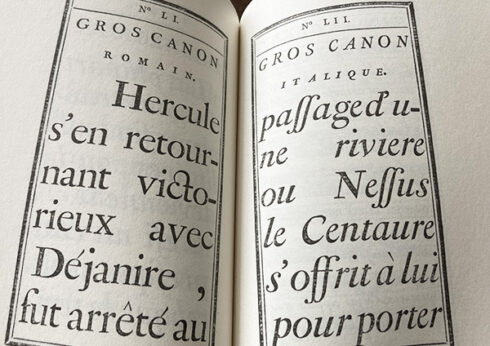 Nº LI.
GROS CANON
ROMAIN.
Hercule
s'en retour-
nant victo-
rieux avec
Déjanire ,
fut arrêté au
Nº LII.
GROS CANON
ITALIQUE.
paſſage d'u-
ne riviere
ou Neſſus
le Centaure
s'offrit à lui
pour porter